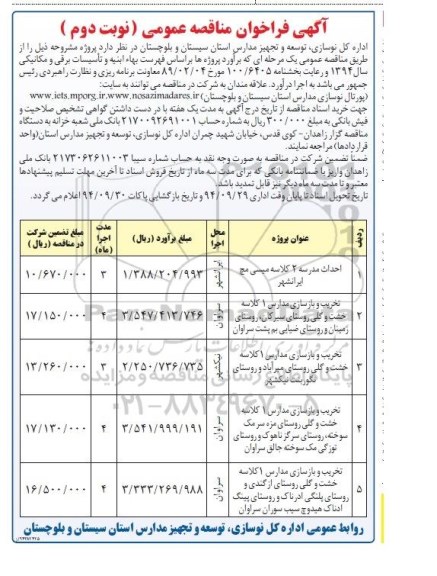 آگهی فراخوان مناقصه عمومی ( نوبت دوم )
اداره کل نوسازی، توسعه و تجهیز مدارس استان سیستان و بلوچستان در نظر دارد پروژه مشروحه ذیل را از
طریق مناقصه عمومی یک مرحله ای که برآورد پروژه ها براساس فهرست بهاء ابنیه و تأسیسات برقی و مکانیکی
سال ۱۳۹۴ و رعایت بخشنامه ۱۰۰/۶۴۰۵ مورخ ۸۹/۰۲/۰۴ معاونت برنامه ریزی و نظارت راهبردی رئیس
جمهور می باشد به اجرا درآورد. علاقه مندان به شرکت در مناقصه می توانند به سایت:
(پورتال نوسازی مدارس استان سیستان و بلوچستان) www.iets.mporg.ir,www.nosazimadares.ir
جهت خرید اسناد مناقصه از تاریخ درج آگهی به مدت یک هفته با در دست داشتن گواهی تشخیص صلاحیت و
فیش بانکی به مبلغ ۳۰۰/۰۰۰ ریال به شماره حساب ۲۱۷۰۰۹۲۶۹۱۰۰۱ بانک ملی شعبه خزانه به دستگاه
مناقصه گزار زاهدان- کوی قدس، خیابان شهید چمران اداره کل نوسازی، توسعه و تجهیز مدارس استان(واحد
قراردادها) مراجعه نمایند.
ضمنا تضمین شرکت در مناقصه به صورت وجه نقد به حساب شماره سیبا ۲۱۷۳۰۶۲۶۱۱۰۰۳ بانک ملی
زاهدان واریز یا ضمانتنامه بانکی که برای مدت سه ماه از تاریخ فروش اسناد تا آخرین مهلت تسلیم پیشنهادها
معتبر و تا مدت سه ماه دیگر نیز قابل تمدید باشد.
تاریخ تحویل اسناد تا پایان وقت اداری ۹۴/۰۹/۲۹ و تاریخ بازگشایی پاکات ۹۴/۰۹/۳۰ اعلام می گردد.
ردیف عنوان پروژه محل اجرا مبلغ برآورد (ریال) مدت اجرا (ماه) مبلغ تضمین شرکت در مناقصه (ریال)
۱ احداث مدرسه ۲ کلاسه میسی مچ ایرانشهر ایرانشهر ۱/۳۸۸/۲۰۴/۹۹۳ ۳ ۱۰/۶۷۰/۰۰۰
۲ تخریب و بازسازی مدارس ۱ کلاسه
خشت و گلی روستای سیرکان، روستای
زمینان و روستای ضیایی بم پشت سراوان سراوان ۳/۵۴۷/۴۱۳/۷۴۶ ۴ ۱۷/۱۵۰/۰۰۰
۳ تخریب و بازسازی مدارس ۱ کلاسه
خشت و گلی روستای میرآباد و روستای
نیکشهر نیکشهر ۲/۲۵۰/۷۳۶/۷۳۵ ۳ ۱۳/۲۶۰/۰۰۰
۴ تخریب و بازسازی مدارس ۱ کلاسه
خشت و گلی روستای مزه سر مک
سوخته، روستای سرگز ناهوک و روستای
توزگی مک سوخته جالق سراوان سراوان ۳/۵۴۱/۹۹۹/۱۹۱ ۴ ۱۷/۱۳۰/۰۰۰
۵ تخریب و بازسازی مدارس ۱ کلاسه
خشت و گلی روستای ازگندی و
روستای پلنگی ادرناک و روستای پینگ
ادناک هیدوچ سیب سوران سراوان سراوان ۳/۳۳۳/۲۶۹/۹۸۸ ۴ ۱۶/۵۰۰/۰۰۰
۰۲۱-۸۸۳۴۹۶۷۰-۵
روابط عمومی اداره کل نوسازی، توسعه و تجهیز مدارس استان سیستان و بلوچستان